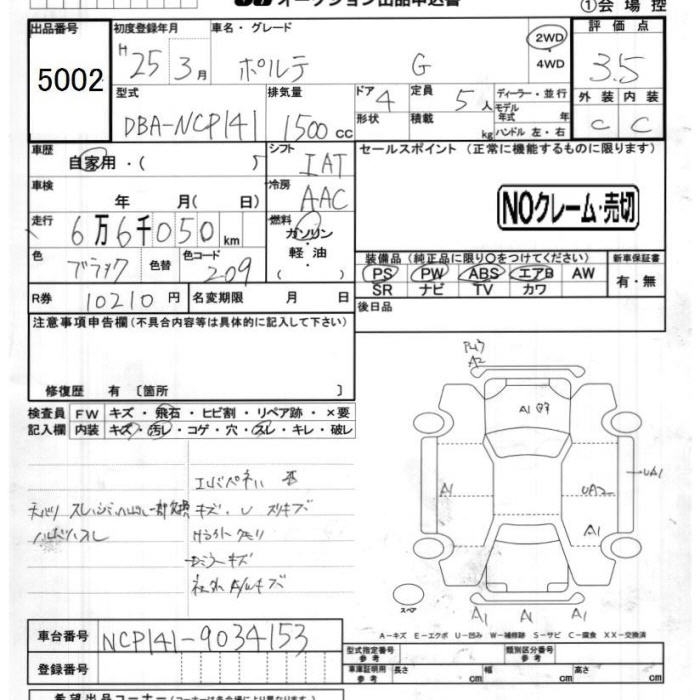 オークション出品申込書
①会場控
出品番号
5002
初度登録年月
H 25 3月
車名・グレード
ポルテ G
2WD
4WD
評価点
3.5
型式
DBA-NCP141
排気量
1500cc
ドア 4
形状
定員 5人
積載 kg
ディーラー・並行
モデル年式 年
ハンドル 左・右
外装 内装
C C
車歴
自家用・( )
シフト
IAT
セールスポイント (正常に機能するものに限ります)
車検
年 月( 日)
冷房
AAC
NOクレーム・売切
走行
6万6千050km
燃料
ガソリン
・
軽油
( )
色
ブラック
色替
色コード
209
装備品 (純正品に限り○をつけてください)
新車保証書
PS PW ABS エアB AW
SR ナビ TV カワ
有・無
R券 10210円
名変期限 月 日
後日品
注意事項申告欄 (不具合内容等は具体的に記入して下さい)
修復歴 有 〔箇所 〕
検査員記入欄
FW キズ・飛石・ヒビ割・リペア跡・×要
内装 キズ・汚レ・コゲ・穴・スレ・キレ・破レ
A2
A1
A1
UA1
UA2
A1
スペア
A1 A1 A1
A-キズ E-エクボ U-凹み W-補修跡 S-サビ C-腐食 XX-交換済
車台番号
NCP141-9034153
登録番号
型式指定番号
参考
類別区分番号
参考
車庫証明用
参考
長さ cm
幅 cm
高さ cm
希望出品コーナー (コーナーは各会場により異なります)